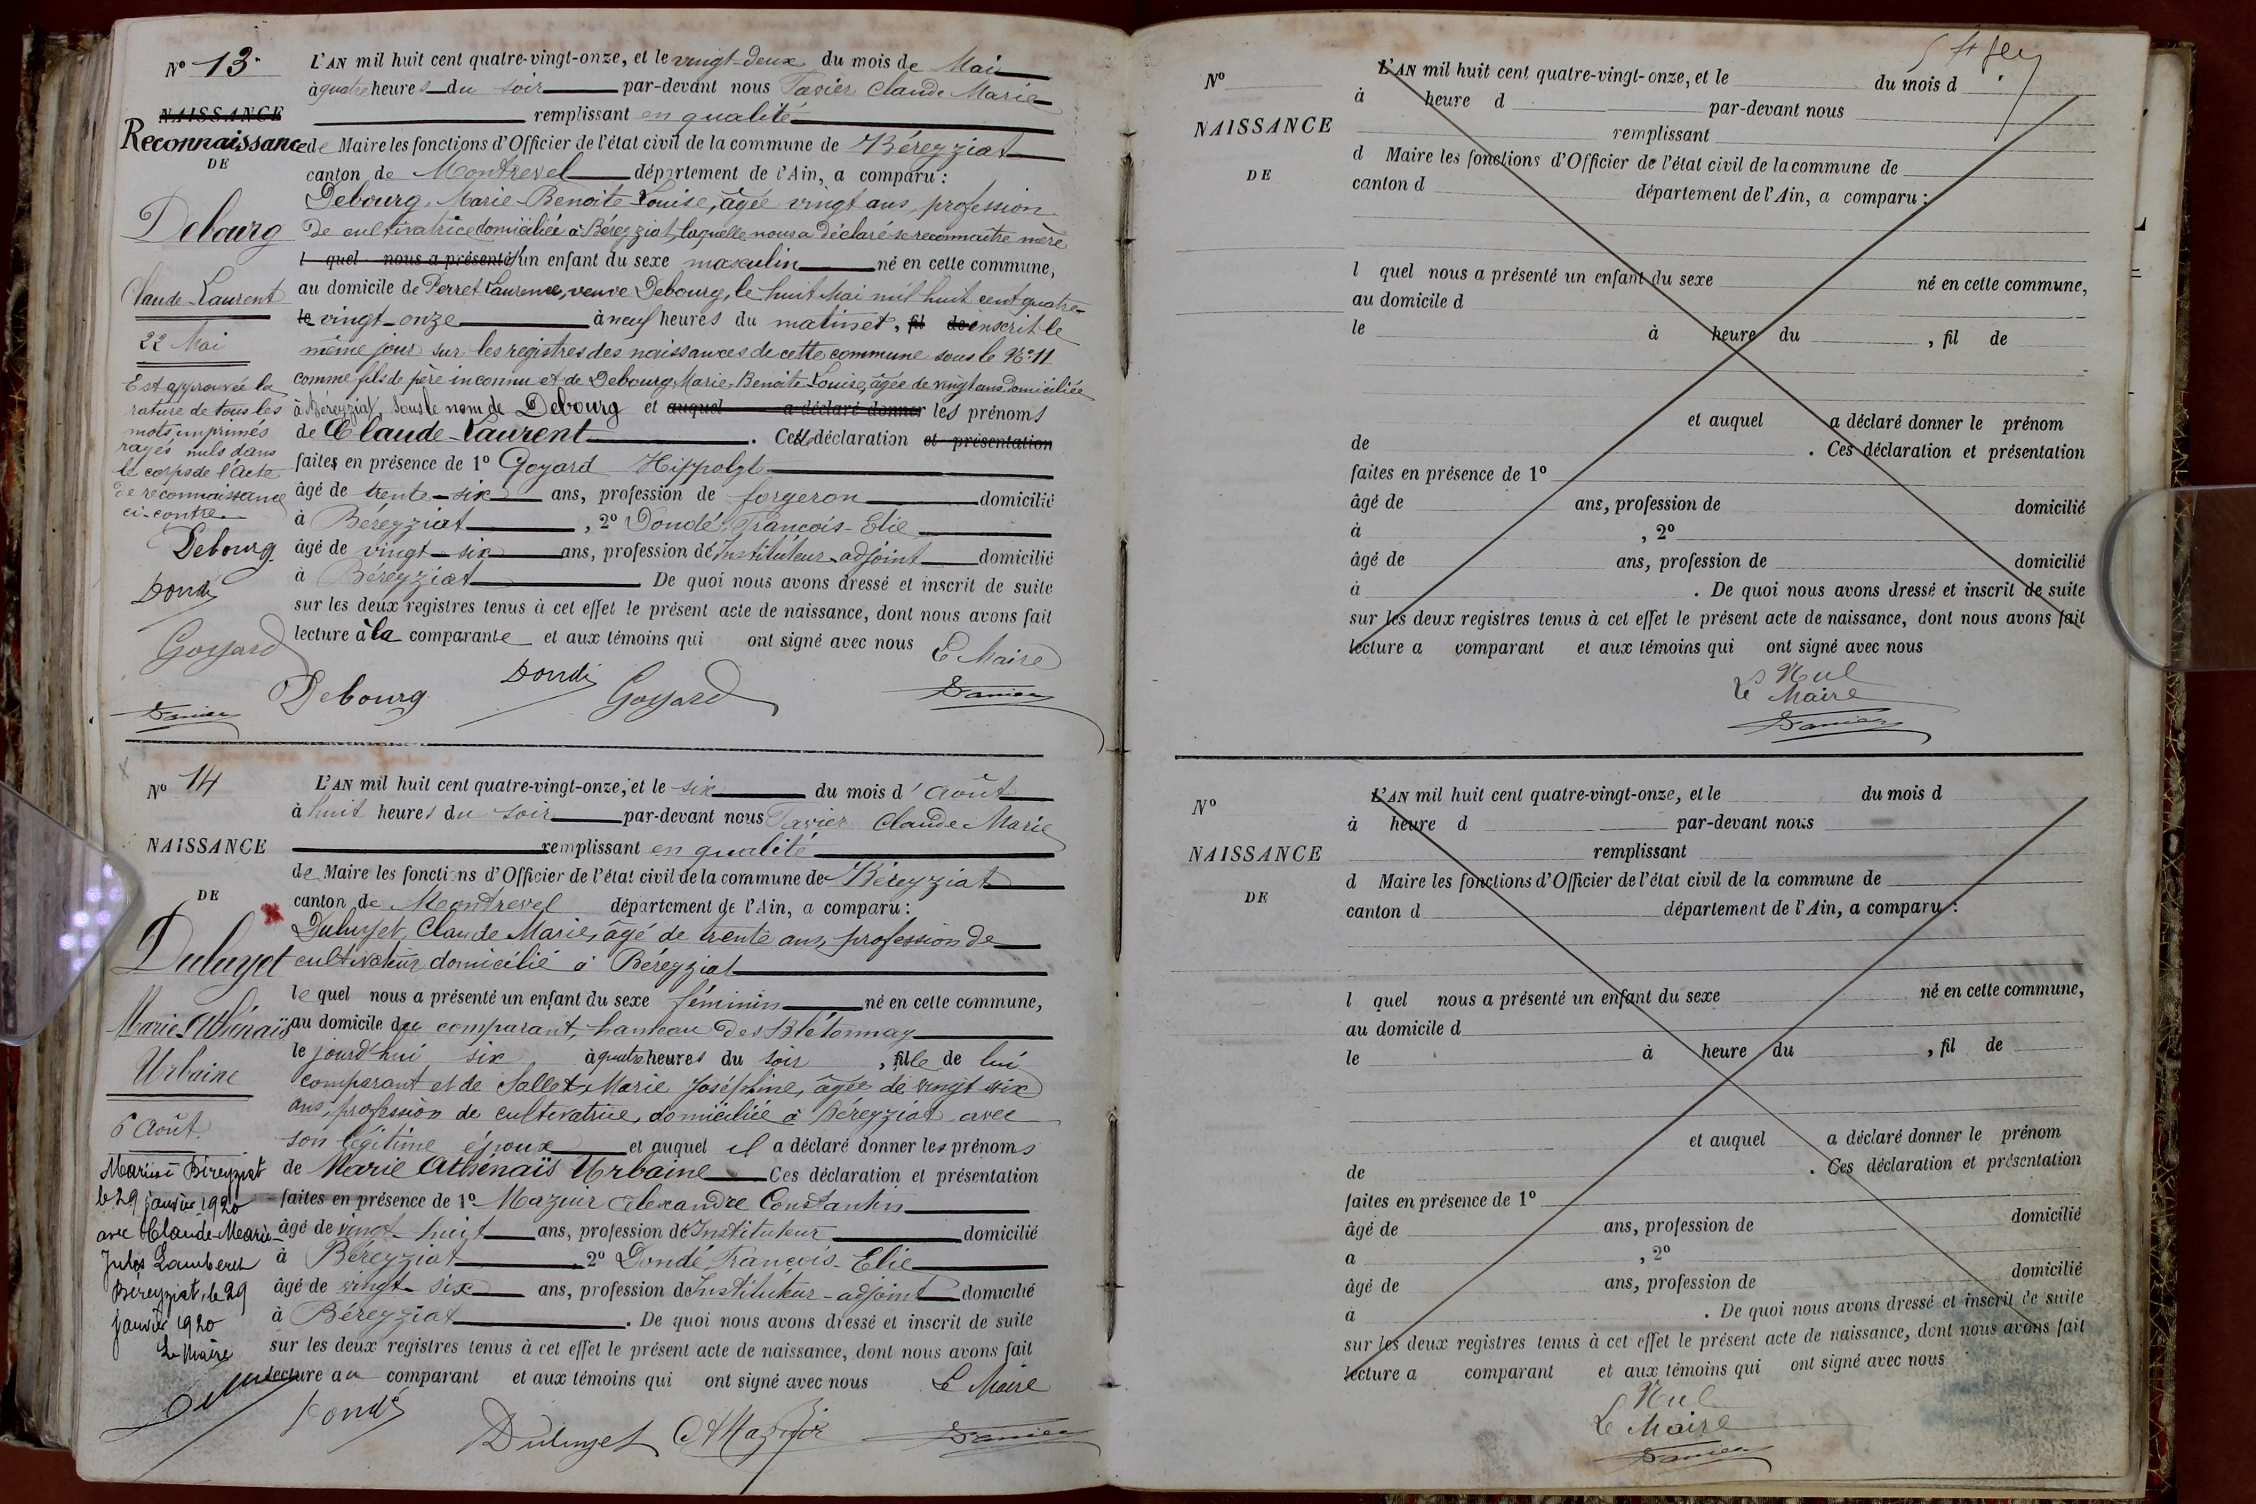 N° 13.
NAISSANCE
Reconnaissance
DE
Debourg
Claude-Laurent
22 Mai
Est approuvée la
rature de tous les
mots imprimés
rayés nuls dans
le corps de l'acte
de reconnaissance
ci-contre.
Debourg
Dondé
Goyard
L'AN mil huit cent quatre-vingt-onze, et le vingt-deux du mois de Mai
à quatre heures du soir par-devant nous Tavier Claude Marie
remplissant en qualité
de Maire les fonctions d'Officier de l'état civil de la commune de Béreyziat
canton de Montrevel département de l'Ain, a comparu :
Debourg, Marie-Benoite-Louise, âgée vingt ans, profession
de cultivatrice domiciliée à Béreyziat, laquelle nous a déclaré se reconnaître mère
l quel nous a présenté d'un enfant du sexe masculin né en cette commune,
au domicile de Perret Laurence, veuve Debourg, le huit Mai mil huit cent quatre-
le vingt-onze à neuf heures du matin et, fil de inscrit le
même jour sur les registres des naissances de cette commune sous le N° 11
comme fils de père inconnu et de Debourg Marie, Benoite Louise, âgée de vingt ans domiciliée
à Béreyziat, sous le nom de Debourg et auquel a déclaré donner les prénoms
de Claude-Laurent . Cette déclaration et présentation
faites en présence de 1° Goyard Hippolyte
âgé de trente-six ans, profession de forgeron domicilié
à Béreyziat , 2° Dondé, François-Elie
âgé de vingt-six ans, profession de Instituteur-adjoint domicilié
à Béreyziat . De quoi nous avons dressé et inscrit de suite
sur les deux registres tenus à cet effet le présent acte de naissance, dont nous avons fait
lecture à la comparante et aux témoins qui ont signé avec nous
Le Maire
Debourg Dondé Goyard
N° 14
NAISSANCE
DE
Duluyet
Marie Athénaïs
Urbaine
6 Août
Mariée à Béreyziat
le 29 janvier 1920
avec Claude-Marie-
Jules Lamberet
Béreyziat, le 29
janvier 1920
Le Maire
L'AN mil huit cent quatre-vingt-onze, et le six du mois d'Août
à huit heures du soir par-devant nous Tavier Claude Marie
remplissant en qualité
de Maire les fonctions d'Officier de l'état civil de la commune de Béreyziat
canton de Montrevel département de l'Ain, a comparu :
Duluyet, Claude Marie, âgé de trente ans, profession de
cultivateur domicilié à Béreyziat
le quel nous a présenté un enfant du sexe féminin né en cette commune,
au domicile du comparant, hameau des
le jourd'hui six à quatre heures du soir , fille de lui
comparant et de Sallet, Marie Joséphine, âgée de vingt six
ans, profession de cultivatrice, domiciliée à Béreyziat avec
son légitime époux et auquel il a déclaré donner les prénoms
de Marie Athénaïs Urbaine Ces déclaration et présentation
faites en présence de 1° Mazuir Alexandre Constantin
âgé de vingt-huit ans, profession de Instituteur domicilié
à Béreyziat , 2° Dondé, François-Elie
âgé de vingt-six ans, profession de Instituteur-adjoint domicilié
à Béreyziat . De quoi nous avons dressé et inscrit de suite
sur les deux registres tenus à cet effet le présent acte de naissance, dont nous avons fait
lecture au comparant et aux témoins qui ont signé avec nous
Le Maire
Dondé Duluyet Mazuir
N°
NAISSANCE
DE
L'AN mil huit cent quatre-vingt-onze, et le du mois d
à heure d par-devant nous
remplissant
d Maire les fonctions d'Officier de l'état civil de la commune de
canton d département de l'Ain, a comparu :
l quel nous a présenté un enfant du sexe né en cette commune,
au domicile d
le à heure du , fil de
et auquel a déclaré donner le prénom
de . Ces déclaration et présentation
faites en présence de 1°
âgé de ans, profession de domicilié
à , 2°
âgé de ans, profession de domicilié
à . De quoi nous avons dressé et inscrit de suite
sur les deux registres tenus à cet effet le présent acte de naissance, dont nous avons fait
lecture a comparant et aux témoins qui ont signé avec nous
Nul
Le Maire
N°
NAISSANCE
DE
L'AN mil huit cent quatre-vingt-onze, et le du mois d
à heure d par-devant nous
remplissant
d Maire les fonctions d'Officier de l'état civil de la commune de
canton d département de l'Ain, a comparu :
l quel nous a présenté un enfant du sexe né en cette commune,
au domicile d
le à heure du , fil de
et auquel a déclaré donner le prénom
de . Ces déclaration et présentation
faites en présence de 1°
âgé de ans, profession de domicilié
a , 2°
âgé de ans, profession de domicilié
à . De quoi nous avons dressé et inscrit de suite
sur les deux registres tenus à cet effet le présent acte de naissance, dont nous avons fait
lecture a comparant et aux témoins qui ont signé avec nous
Nul
Le Maire